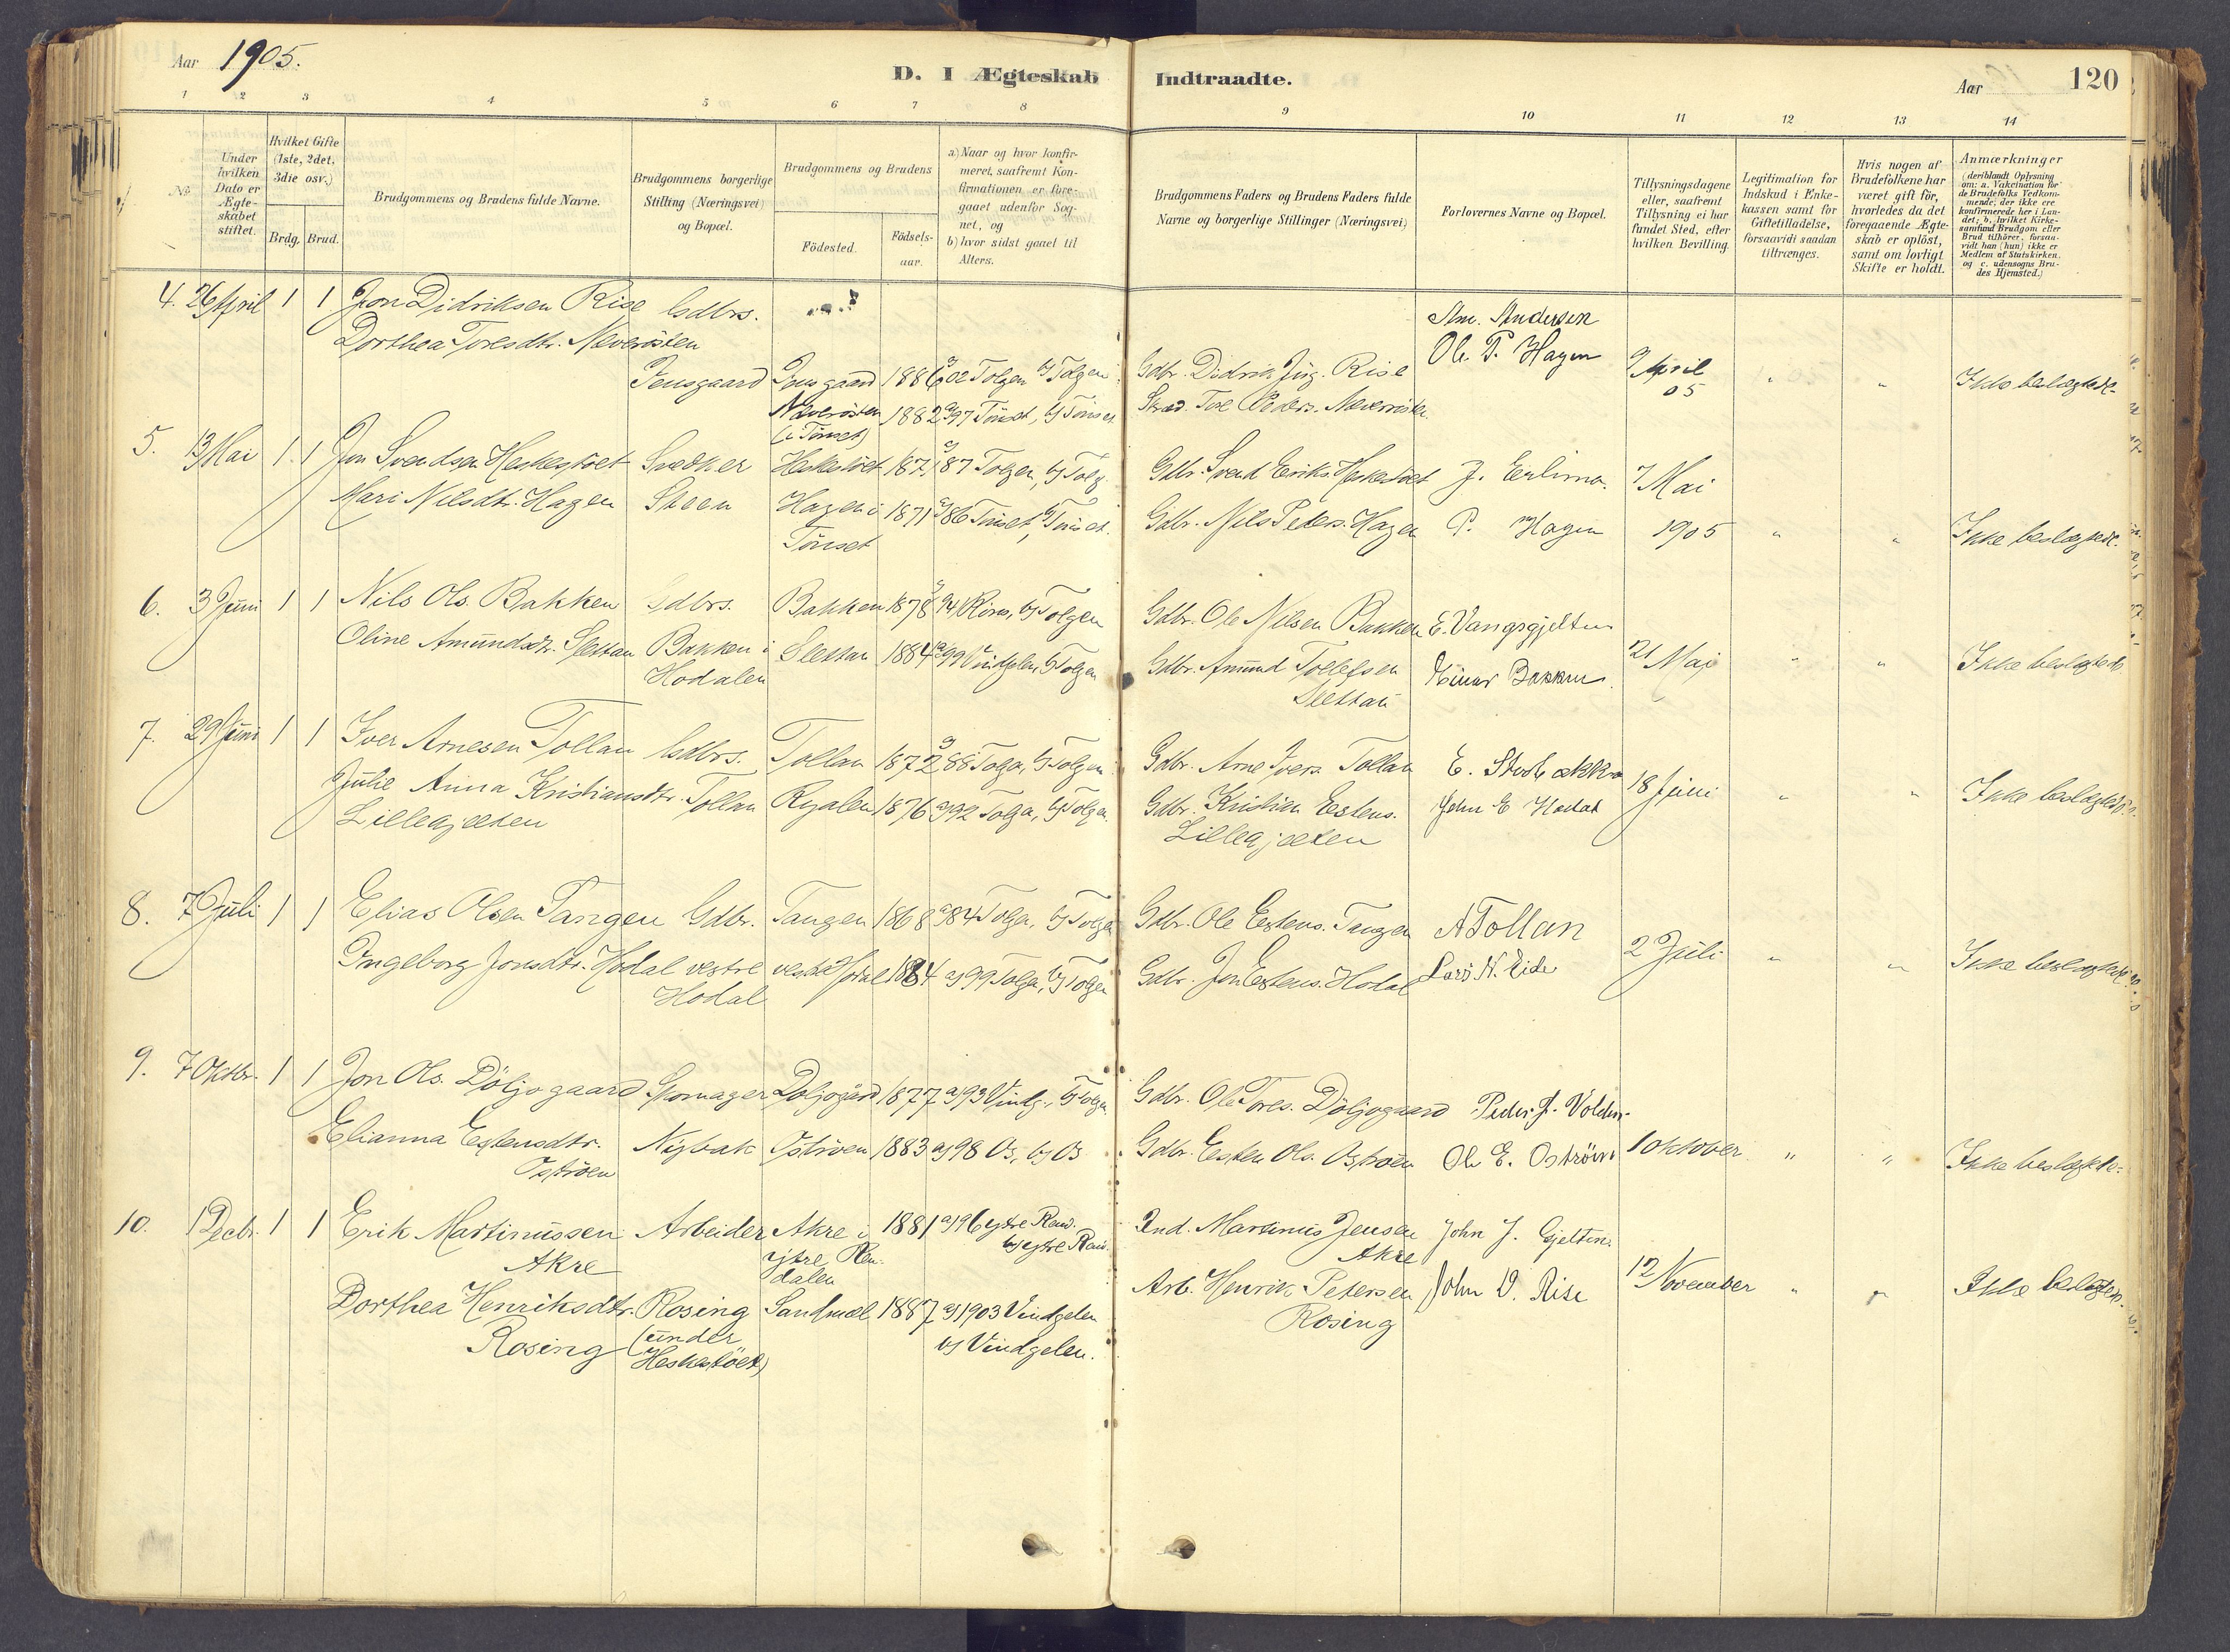 Aar 1905.
D. I Ægteskab Indtraadte.
Aar 120
1 2 3 4 5 6 7 8 9 10 11 12 13 14
No.
Under hvilken Dato er Ægteskabet stiftet.
Hvilket Gifte (1ste, 2det, 3die osv.)
Brdg. Brud.
Brudgommens og Brudens fulde Navne.
Brudgommens borgerlige Stilling (Næringsvei) og Bopæl.
Brudgommens og Brudens
Födested.
Födselsaar.
a) Naar og hvor konfirmeret, saafremt Konfirmationen er foregaaet udenfor Sognet, og
b) hvor sidst gaaet til Alters.
Brudgommens Faders og Brudens Faders fulde Navne og borgerlige Stillinger (Næringsvei)
Forlovernes Navne og Bopæl.
Tillysningsdagene eller, saafremt Tillysning ei har fundet Sted, efter hvilken Bevilling.
Legitimation for Indskud i Enkekassen samt for Giftetilladelse, forsaavidt saadan tiltrænges.
Hvis nogen af Brudefolkene har været gift för, hvorledes da det foregaaende Ægteskab er oplöst, samt om lovligt Skifte er holdt.
Anmærkninger (deriblandt Oplysning om: a. Vakcination for de Brudefolks Vedkommende, der ikke ere konfirmerede her i Landet; b. hvilket Kirkesamfund Brudgom eller Brud tilhörer, forsaavidt han (hun) ikke er Medlem af Statskirken, og c. udensogns Brudes Hjemsted.)
4. 26 April 1 1 Jon Didriksen Rise Gdbrs.
Dorthea Toresdtr. Neverösten
Jensgaard Jensgaard 1886 a) 02 Tolgen b) Tolgen
Neverösten (i Tönset) 1882 a) 97 Tönset, b) Tönset
Gdbr. Didrik Jörg. Rise
Skræd. Tore Peders. Neverösten
Am. Andersen
Ole P. Hagen
9 April 05 " " Ikke beslægtede.
5. 13 Mai 1 1 Jon Svendsen Heskestöet Snedker Heskestöet 1871 a) 87 Tolgen, b) Tolg.
Mari Nilsdtr. Hagen Steen Hagen i Tönset 1871 a) 86 Tönset, b) Tönset.
Gdbr. Svend Eriks. Heskestöet
Gdbr. Nils Peters. Hagen
J. Erlimo.
P. Hagen
7 Mai 1905 " " Ikke beslægtede.
6. 3 Juni 1 1 Nils Ols. Bakken Gdbrs. Bakken 1878 a) 94 Röros, b) Tolgen
Oline Amundsdtr. Slettan Bakken i Hodalen Slettan 1884 a) 99 Vindgelen, b) Tolgen
Gdbr. Ole Nilsen Bakken
Gdbr. Amund Tollefsen Slettan
E. Vangsgjelten
Einar Bakken.
21 Mai " " Ikke beslægtede
7. 29 Juni 1 1 Iver Arnesen Tollan Gdbrs. Tollan 1872 a) 88 Tolga, b) Tolgen
Julie Anna Kristiansdtr. Lillegjelten Tollan Ryalen 1876 a) 92 Tolga, b) Tolgen.
Gdbr. Arne Ivers. Tollan
Gdbr. Kristian Estens. Lillegjelten
John E Hodal
18 Juni " " Ikke beslægtede.
8. 7 Juli 1 1 Elias Olsen Tangen Gdbr. Tangen 1868 a) 84 Tolgen, b) Tolgen
Ingeborg Jonsdtr. Hodal vestre Hodal vestre Hodal 1884 a) 99 Tolgen, b) Tolgen
Gdbr. Ole Estens. Tangen
Gdbr. Jon Estens. Hodal
A Tollan
Lars N. Eide
2 Juli " " Ikke beslægtede.
9. 7 Oktbr. 1 1 Jon Ols. Döljogaard Skomager Döljogård 1877 a) 93 Vindg., b) Tolgen
Elianna Estensdtr. Oströen Nigbak Oströen 1883 a) 98 Os, b) Os
Gdbr. Ole Tores. Döljogaard
Gdbr. Esten Ols. Oströen
Peder J. Volden.
Ole E. Oströen
1 Oktober " " Ikke beslægtede.
10. 1 Decbr. 1 1 Erik Martinussen Akre Arbeider Akre i ytre Rendalen 1881 a) 96 ytre Rend. b) ytre Rend.
Dorthea Henriksdtr. Rosing Rosing (under Heskestöet) Sandmæl 1887 a) 1903 Vindgelen b) Vindgelen.
Ind. Martinus Jensen Akre
Arb. Henrik Petersen Rosing
John J. Gjelten.
John D. Rise
12 November " " Ikke beslægtede.